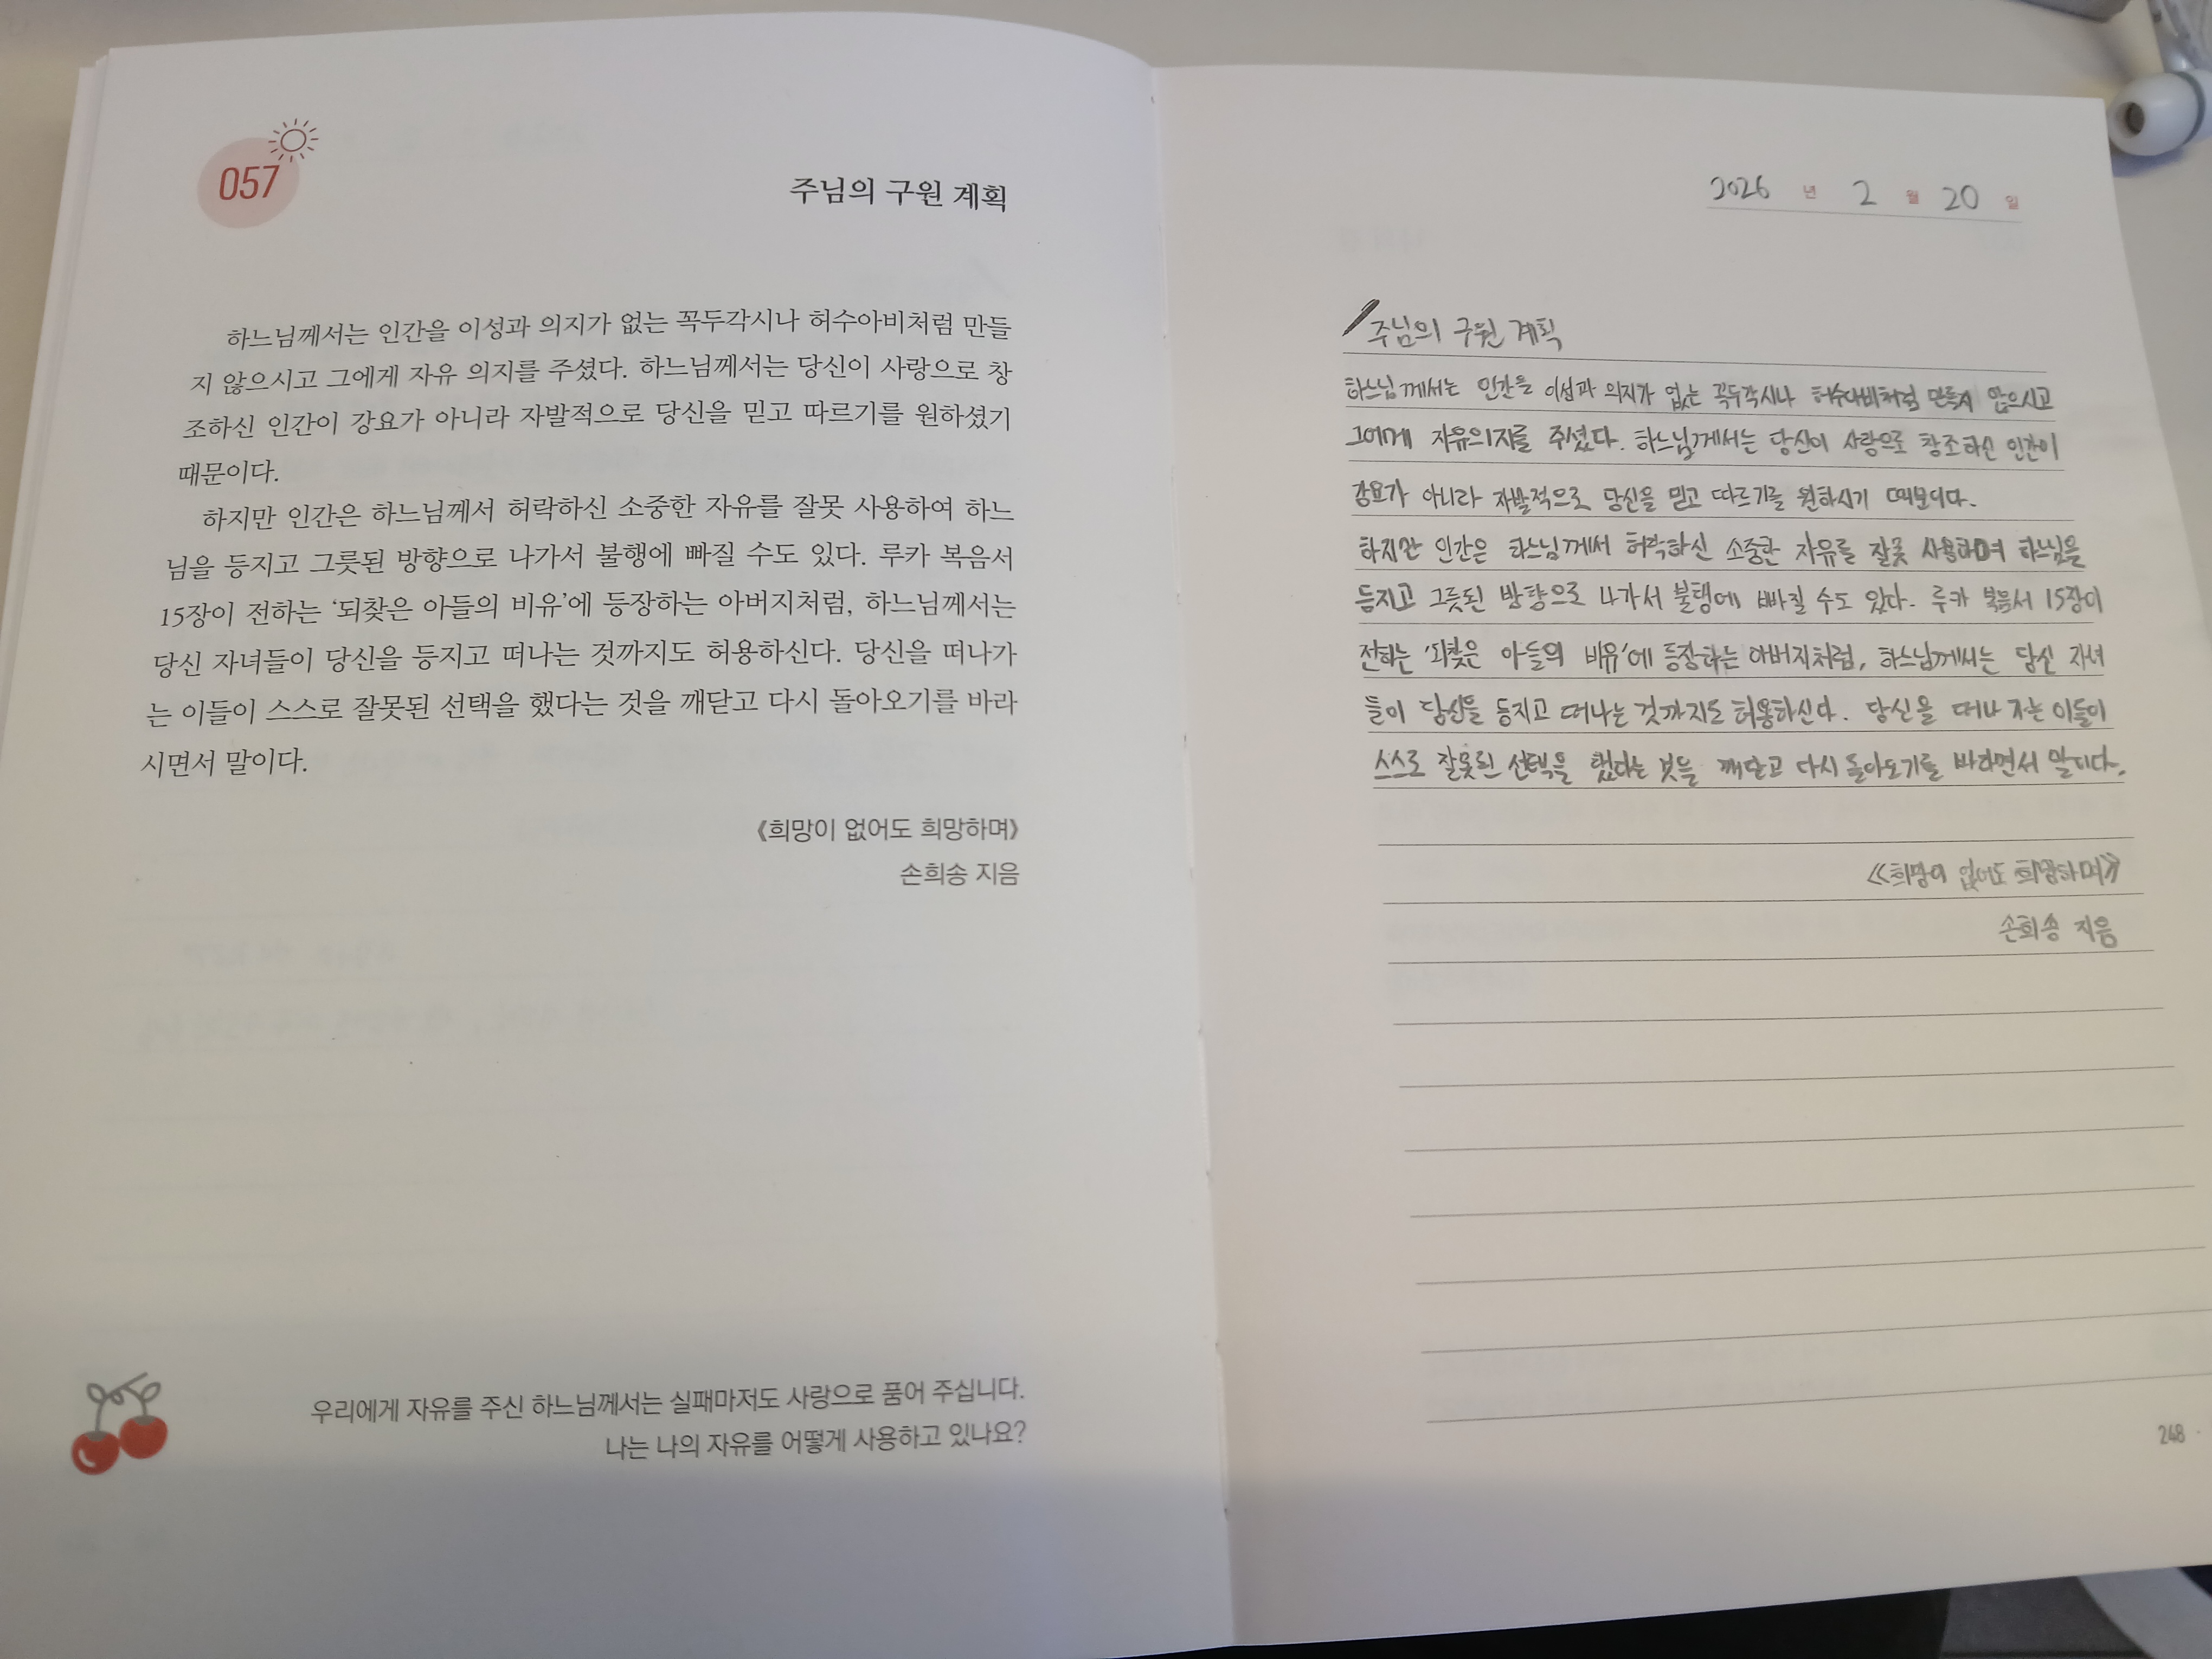 057
주님의 구원 계획
하느님께서는 인간을 이성과 의지가 없는 꼭두각시나 허수아비처럼 만들
지 않으시고 그에게 자유 의지를 주셨다. 하느님께서는 당신이 사랑으로 창
조하신 인간이 강요가 아니라 자발적으로 당신을 믿고 따르기를 원하셨기
때문이다.
하지만 인간은 하느님께서 허락하신 소중한 자유를 잘못 사용하여 하느
님을 등지고 그릇된 방향으로 나가서 불행에 빠질 수도 있다. 루카 복음서
15장이 전하는 ‘되찾은 아들의 비유’에 등장하는 아버지처럼, 하느님께서는
당신 자녀들이 당신을 등지고 떠나는 것까지도 허용하신다. 당신을 떠나가
는 이들이 스스로 잘못된 선택을 했다는 것을 깨닫고 다시 돌아오기를 바라
시면서 말이다.
《희망이 없어도 희망하며》
손희송 지음
우리에게 자유를 주신 하느님께서는 실패마저도 사랑으로 품어 주십니다.
나는 나의 자유를 어떻게 사용하고 있나요?
2026 년 2 월 20 일
주님의 구원 계획
하느님께서는 인간을 이성과 의지가 없는 꼭두각시나 허수아비처럼 만들지 않으시고
그에게 자유의지를 주셨다. 하느님께서는 당신이 사랑으로 창조하신 인간이
강요가 아니라 자발적으로 당신을 믿고 따르기를 원하시기 때문이다.
하지만 인간은 하느님께서 허락하신 소중한 자유를 잘못 사용하며 하느님을
등지고 그릇된 방향으로 나가서 불행에 빠질 수도 있다. 루카 복음서 15장이
전하는 '되찾은 아들의 비유'에 등장하는 아버지처럼, 하느님께서는 당신 자녀
들이 당신을 등지고 떠나는 것까지도 허용하신다. 당신을 떠나 이들이
스스로 잘못된 선택을 했다는 것을 깨닫고 다시 돌아오기를 바라면서 말이다.
《희망이 없어도 희망하며》
손희송 지음
248